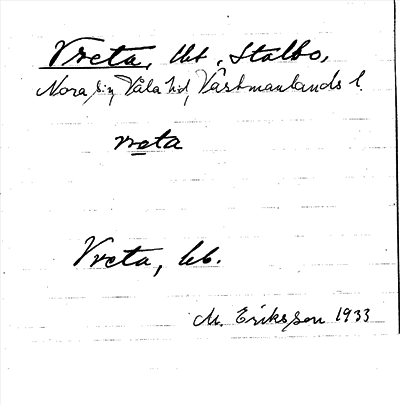 Vreta, lht, Stalbo,
Nora sn, Våla hd, Västmanlands l.
vreta
Vreta, bb.
M. Eriksson 1933